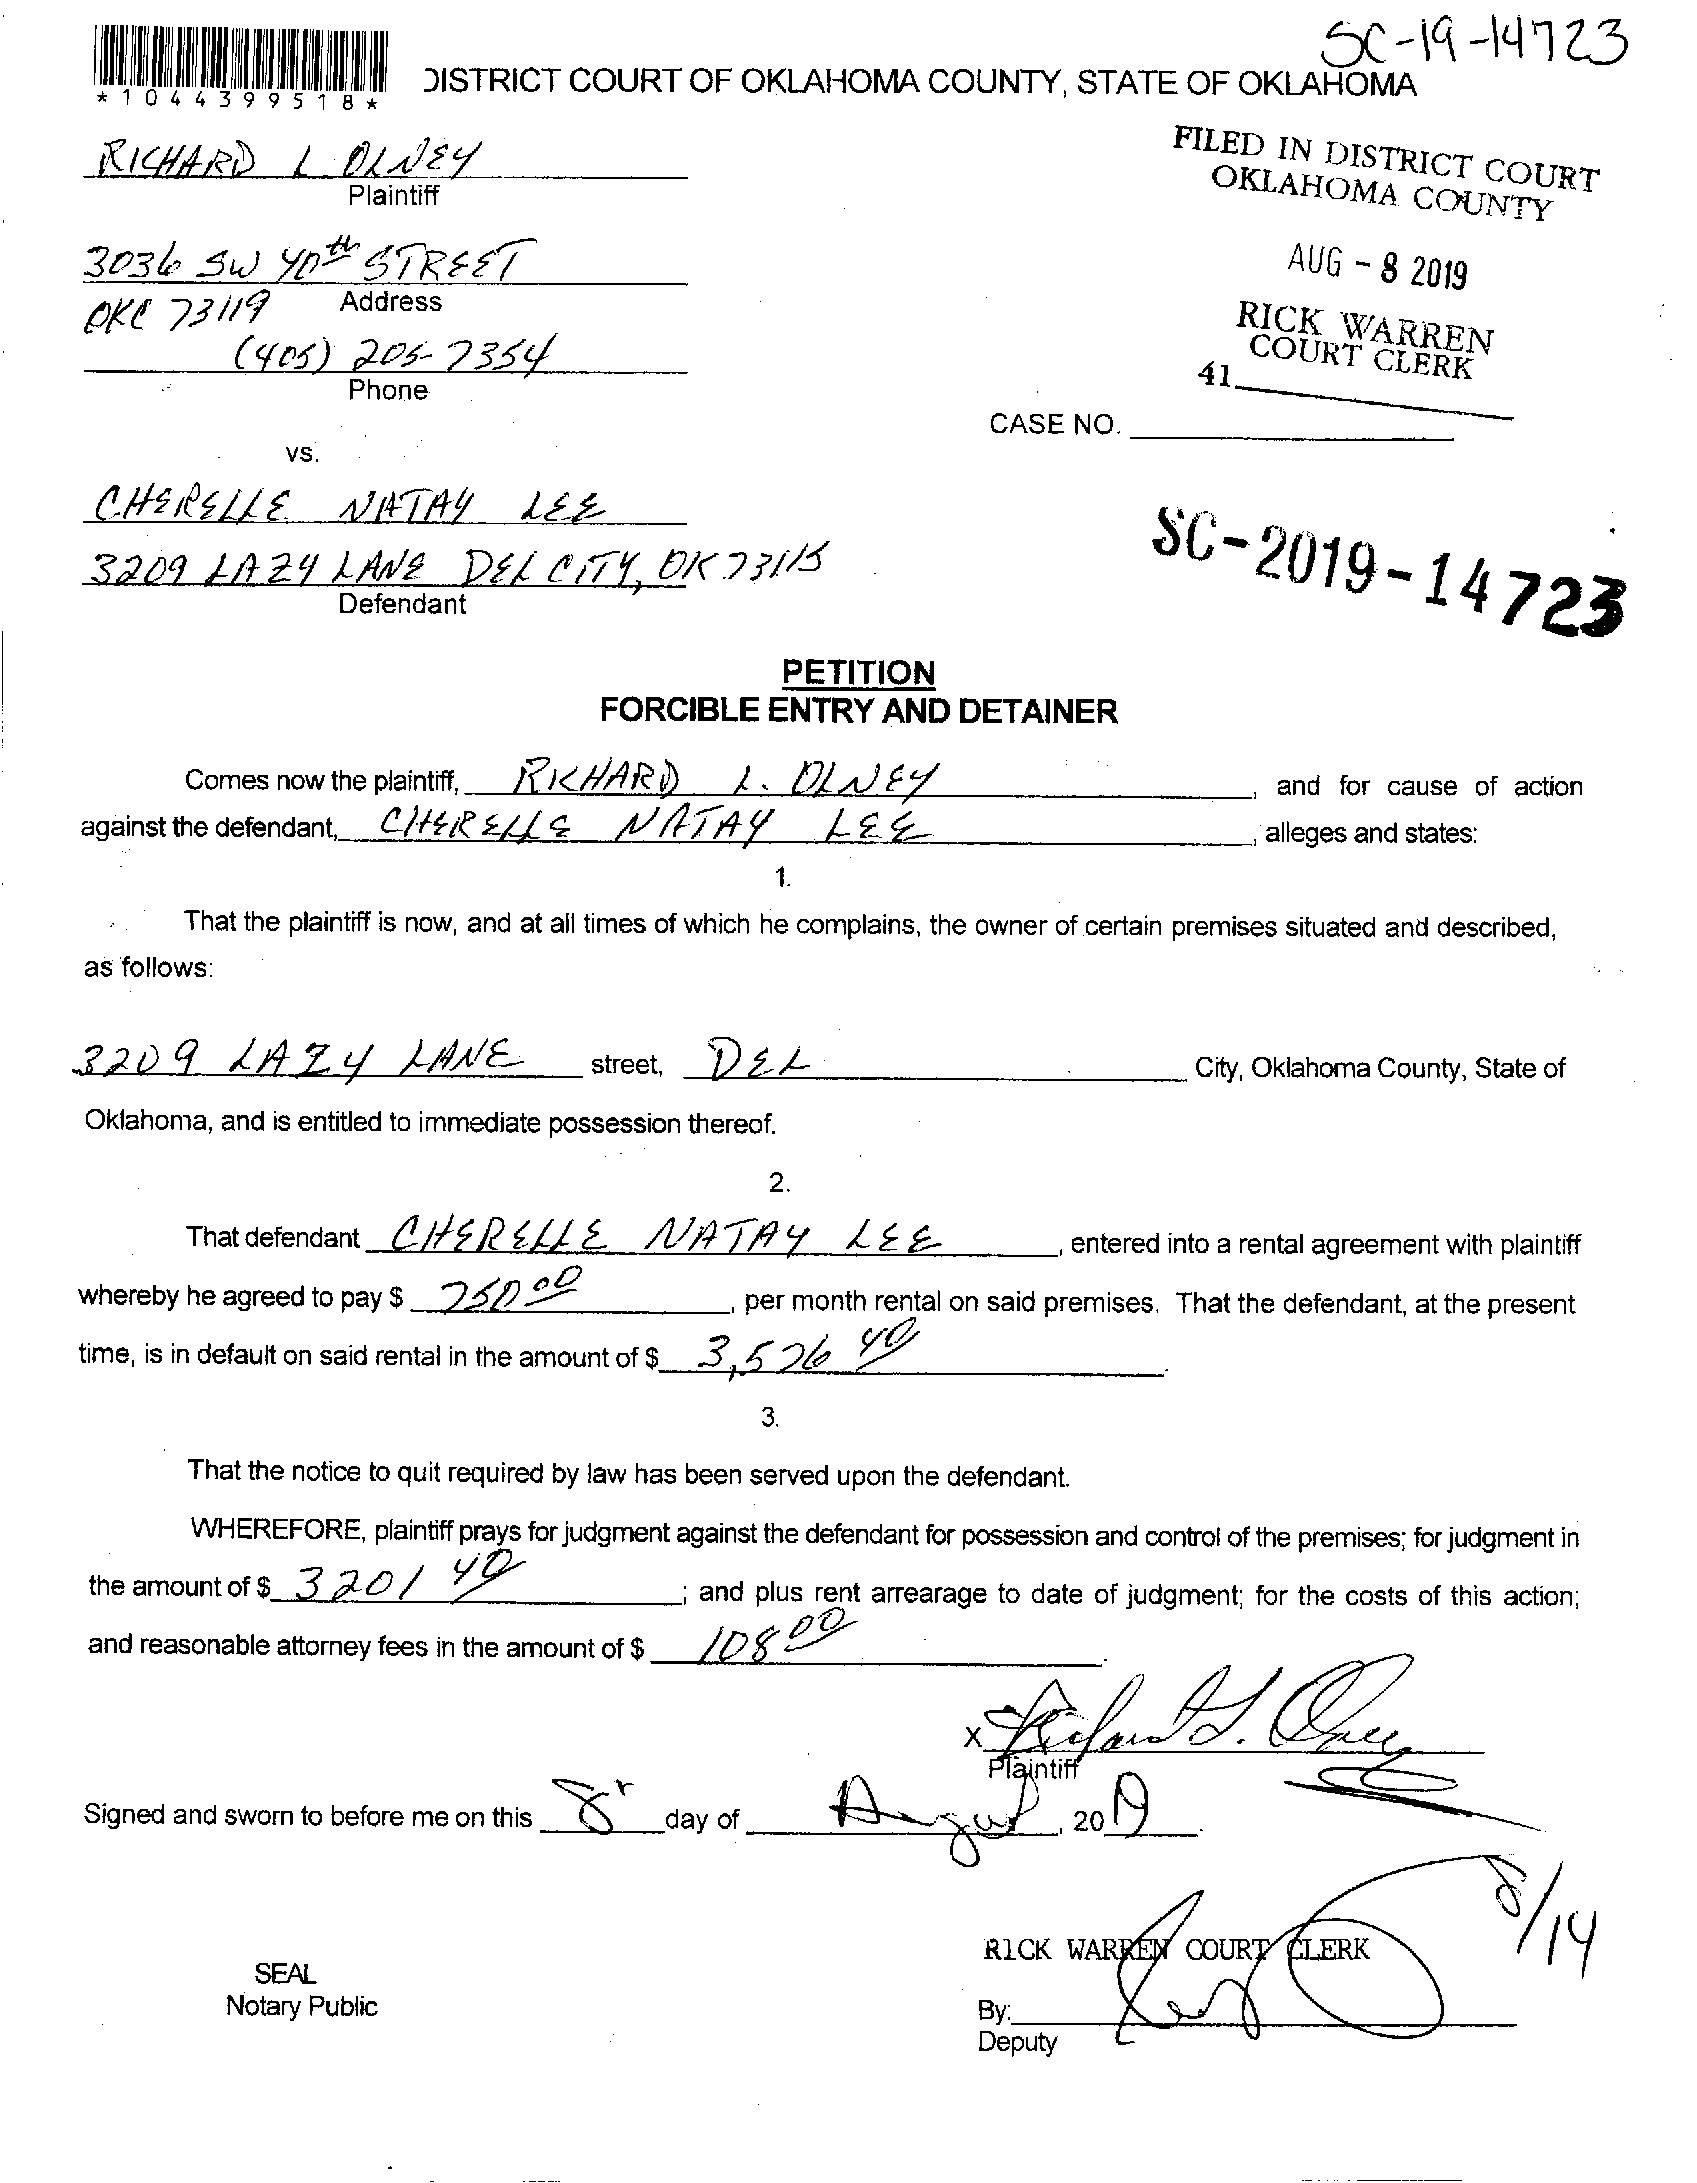 SC-19-14723
*1044399518*
DISTRICT COURT OF OKLAHOMA COUNTY, STATE OF OKLAHOMA
RICHARD L OLNEY
Plaintiff
FILED IN DISTRICT COURT
OKLAHOMA COUNTY
3036 SW 40th STREET
Address
OKC 73119
AUG - 8 2019
(405) 205-7354
Phone
RICK WARREN
COURT CLERK
41
CASE NO.
vs.
CHERELLE NATAY LEE
3209 LAZY LANE DEL CITY, OK 73115
Defendant
SC-2019-14723
PETITION
FORCIBLE ENTRY AND DETAINER
Comes now the plaintiff, RICHARD L. OLNEY, and for cause of action
against the defendant, CHERELLE NATAY LEE, alleges and states:
1.
That the plaintiff is now, and at all times of which he complains, the owner of certain premises situated and described,
as follows:
3209 LAZY LANE street, DEL City, Oklahoma County, State of
Oklahoma, and is entitled to immediate possession thereof.
2.
That defendant CHERELLE NATAY LEE, entered into a rental agreement with plaintiff
whereby he agreed to pay $ 750 00, per month rental on said premises. That the defendant, at the present
time, is in default on said rental in the amount of $ 3,576 40.
3.
That the notice to quit required by law has been served upon the defendant.
WHEREFORE, plaintiff prays for judgment against the defendant for possession and control of the premises; for judgment in
the amount of $ 3201 40; and plus rent arrearage to date of judgment; for the costs of this action;
and reasonable attorney fees in the amount of $ 108 00.
X Richard L. Olney
Plaintiff
Signed and sworn to before me on this 8 day of August, 2019.
8/14
RICK WARREN COURT CLERK
SEAL
Notary Public
By:
Deputy